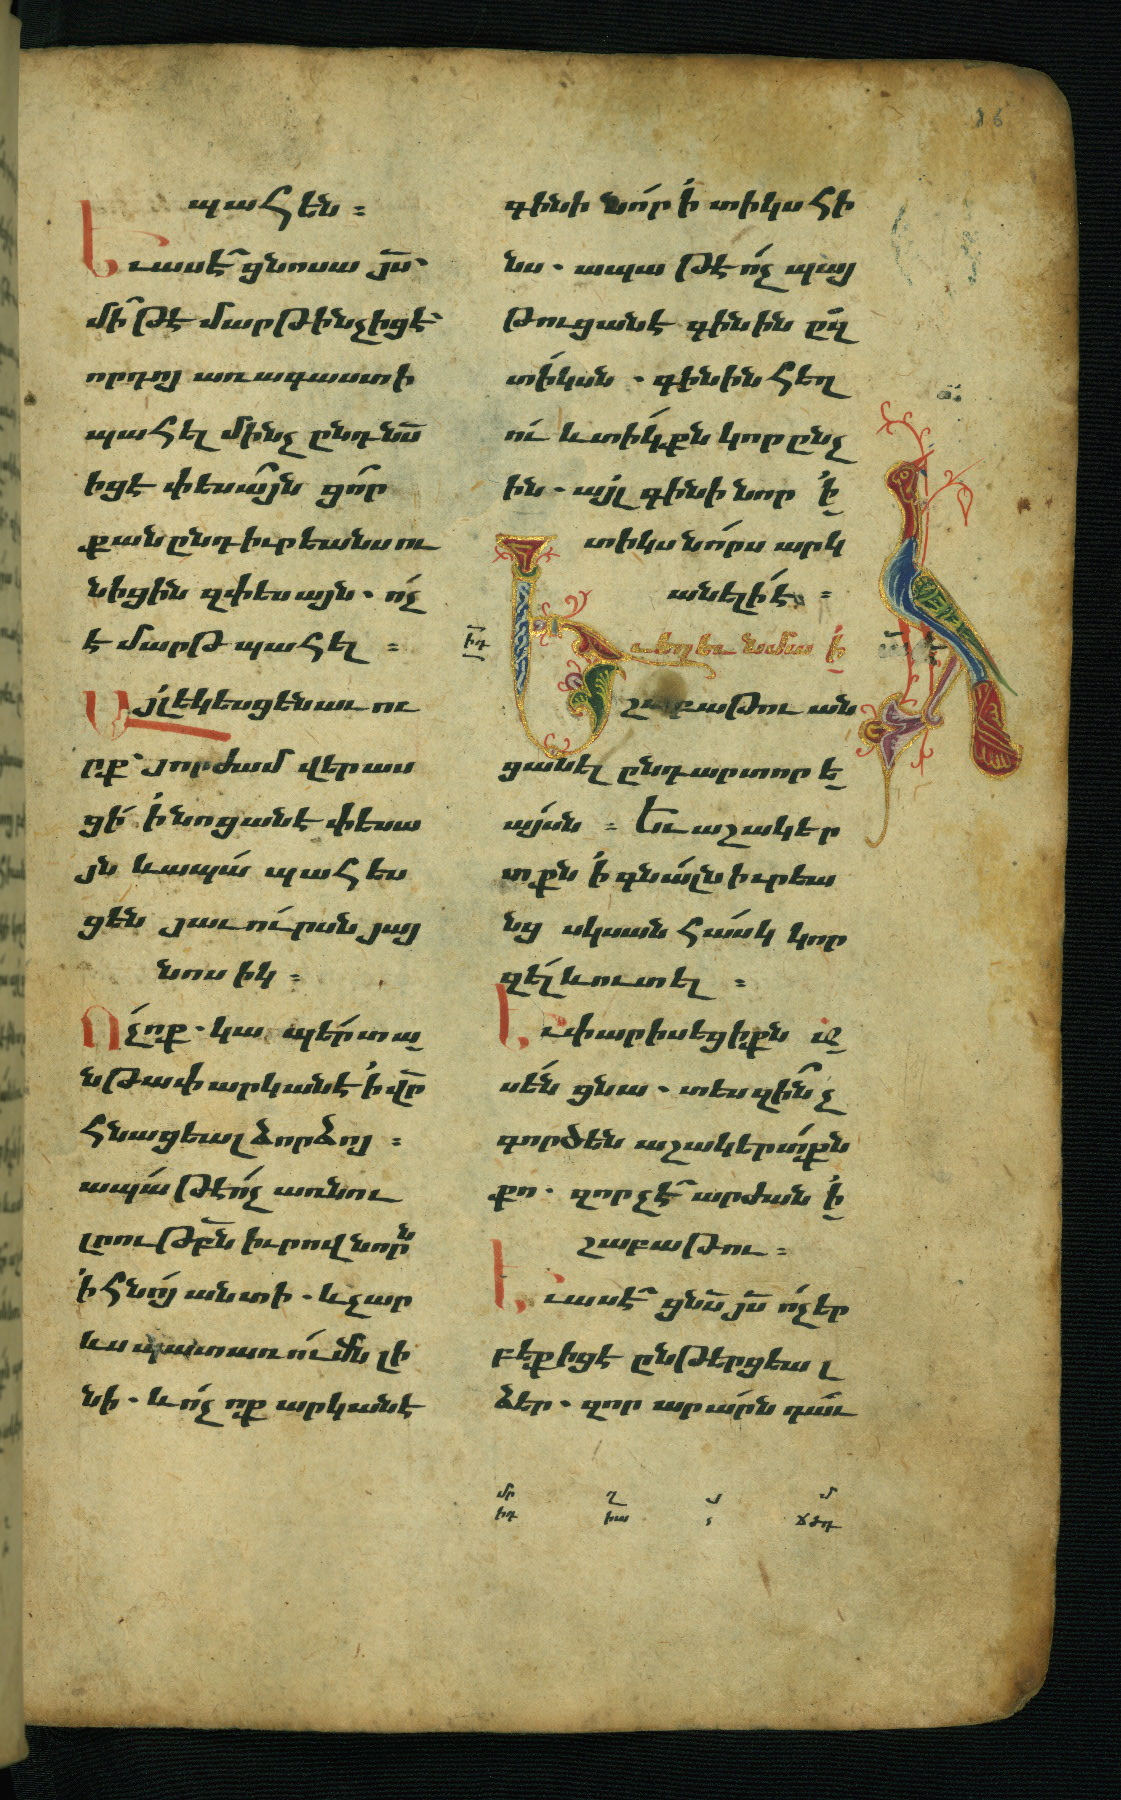 պահեն ։
Եւ ասէ ցնոսա յս՝
մի թէ մարթ ինչ իցէ՝
որդւոյ առագաստի
պահել մինչ ընդ նս
իցէ փեսայն ցոր
քան ընդ իւրեանս ու
նիցին զփեսայն . ոչ
է մարթ պահել ։
Այլ եկեսցեն աւու
րք՝ յորժամ վերաս
ցի ի նոցանէ փեսա
յն և ապա պահես
ցեն յաւուրսն յայ
նոսիկ ։
Ոչ ոք . կապերտ ա
նթափ արկանէ ի վր
հնացեալ ձորձոյ ։
ապա թէ ոչ առնու
լրութբն իւրով նորն
ի հնոյ անտի . և չար
ևս պատառումն լի
նի . և ոչ ոք արկանէ
գինի նոր ի տիկս հի
նս . ապա թէ ոչ պայ
թուցանէ գինին զ
տիկսն . գինին հեղ
ու և տիկքն կորընչ
ին . այլ գինի նոր ի
տիկս նորս արկ
անելի է ։
իդ
Եւ եղև նմա ի
շաբաթու ան
ցանել ընդ արտորե
այսն ։ Եւ աշակեր
տքն ի գնալն իւրեա
նց սկսան հասկ կոր
զել և ուտել ։
Եւ փարիսեցիքն ա
սեն ցնա . տես զինչ
գործեն աշակերտքն
քո . զոր չէ արժան ի
շաբաթու ։
Եւ ասէ ցնս յս ոչ եր
բեք իցէ ընթերցեալ
ձեր . զոր արարն դաւ